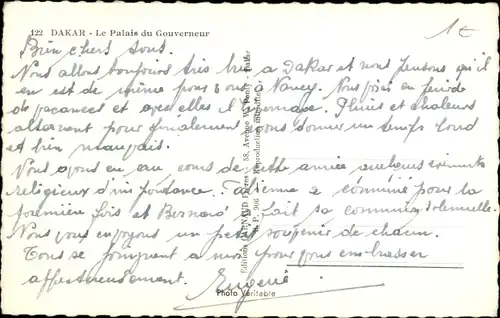 122 DAKAR - Le Palais du Gouverneur
1 €
Bien chers tous.
Nous allons toujours très bien a Dakar et nous pensons qu'il
en est de même pour vous Nancy. Nous voici en période
de vacances et avec elles l'hivernage. Pluies et chaleurs
alternent pour finalement vous donner un temps lourd
et bien mauvais.
Nous avons eu au cours de cette année quelques
religieux d'importance. a communié pour la
première fois et Bernard a fait sa communion solennelle.
Nous vous envoyons un petit souvenir de chacun.
Tous se joignent a moi pour vous embrasser
affectueusement. Eugenie
Photo Véritable
58, Avenue - Dakar
B. P. 906 - Reproduction interdite